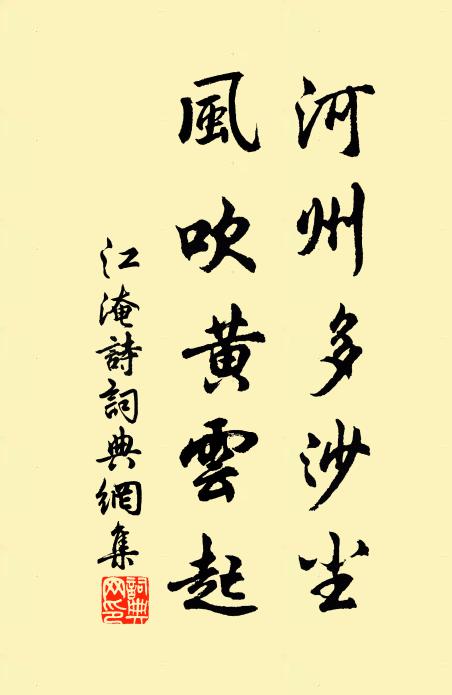 河州多沙尘
風吹黄雲起
江淹詩詞典網集
詞典
网印